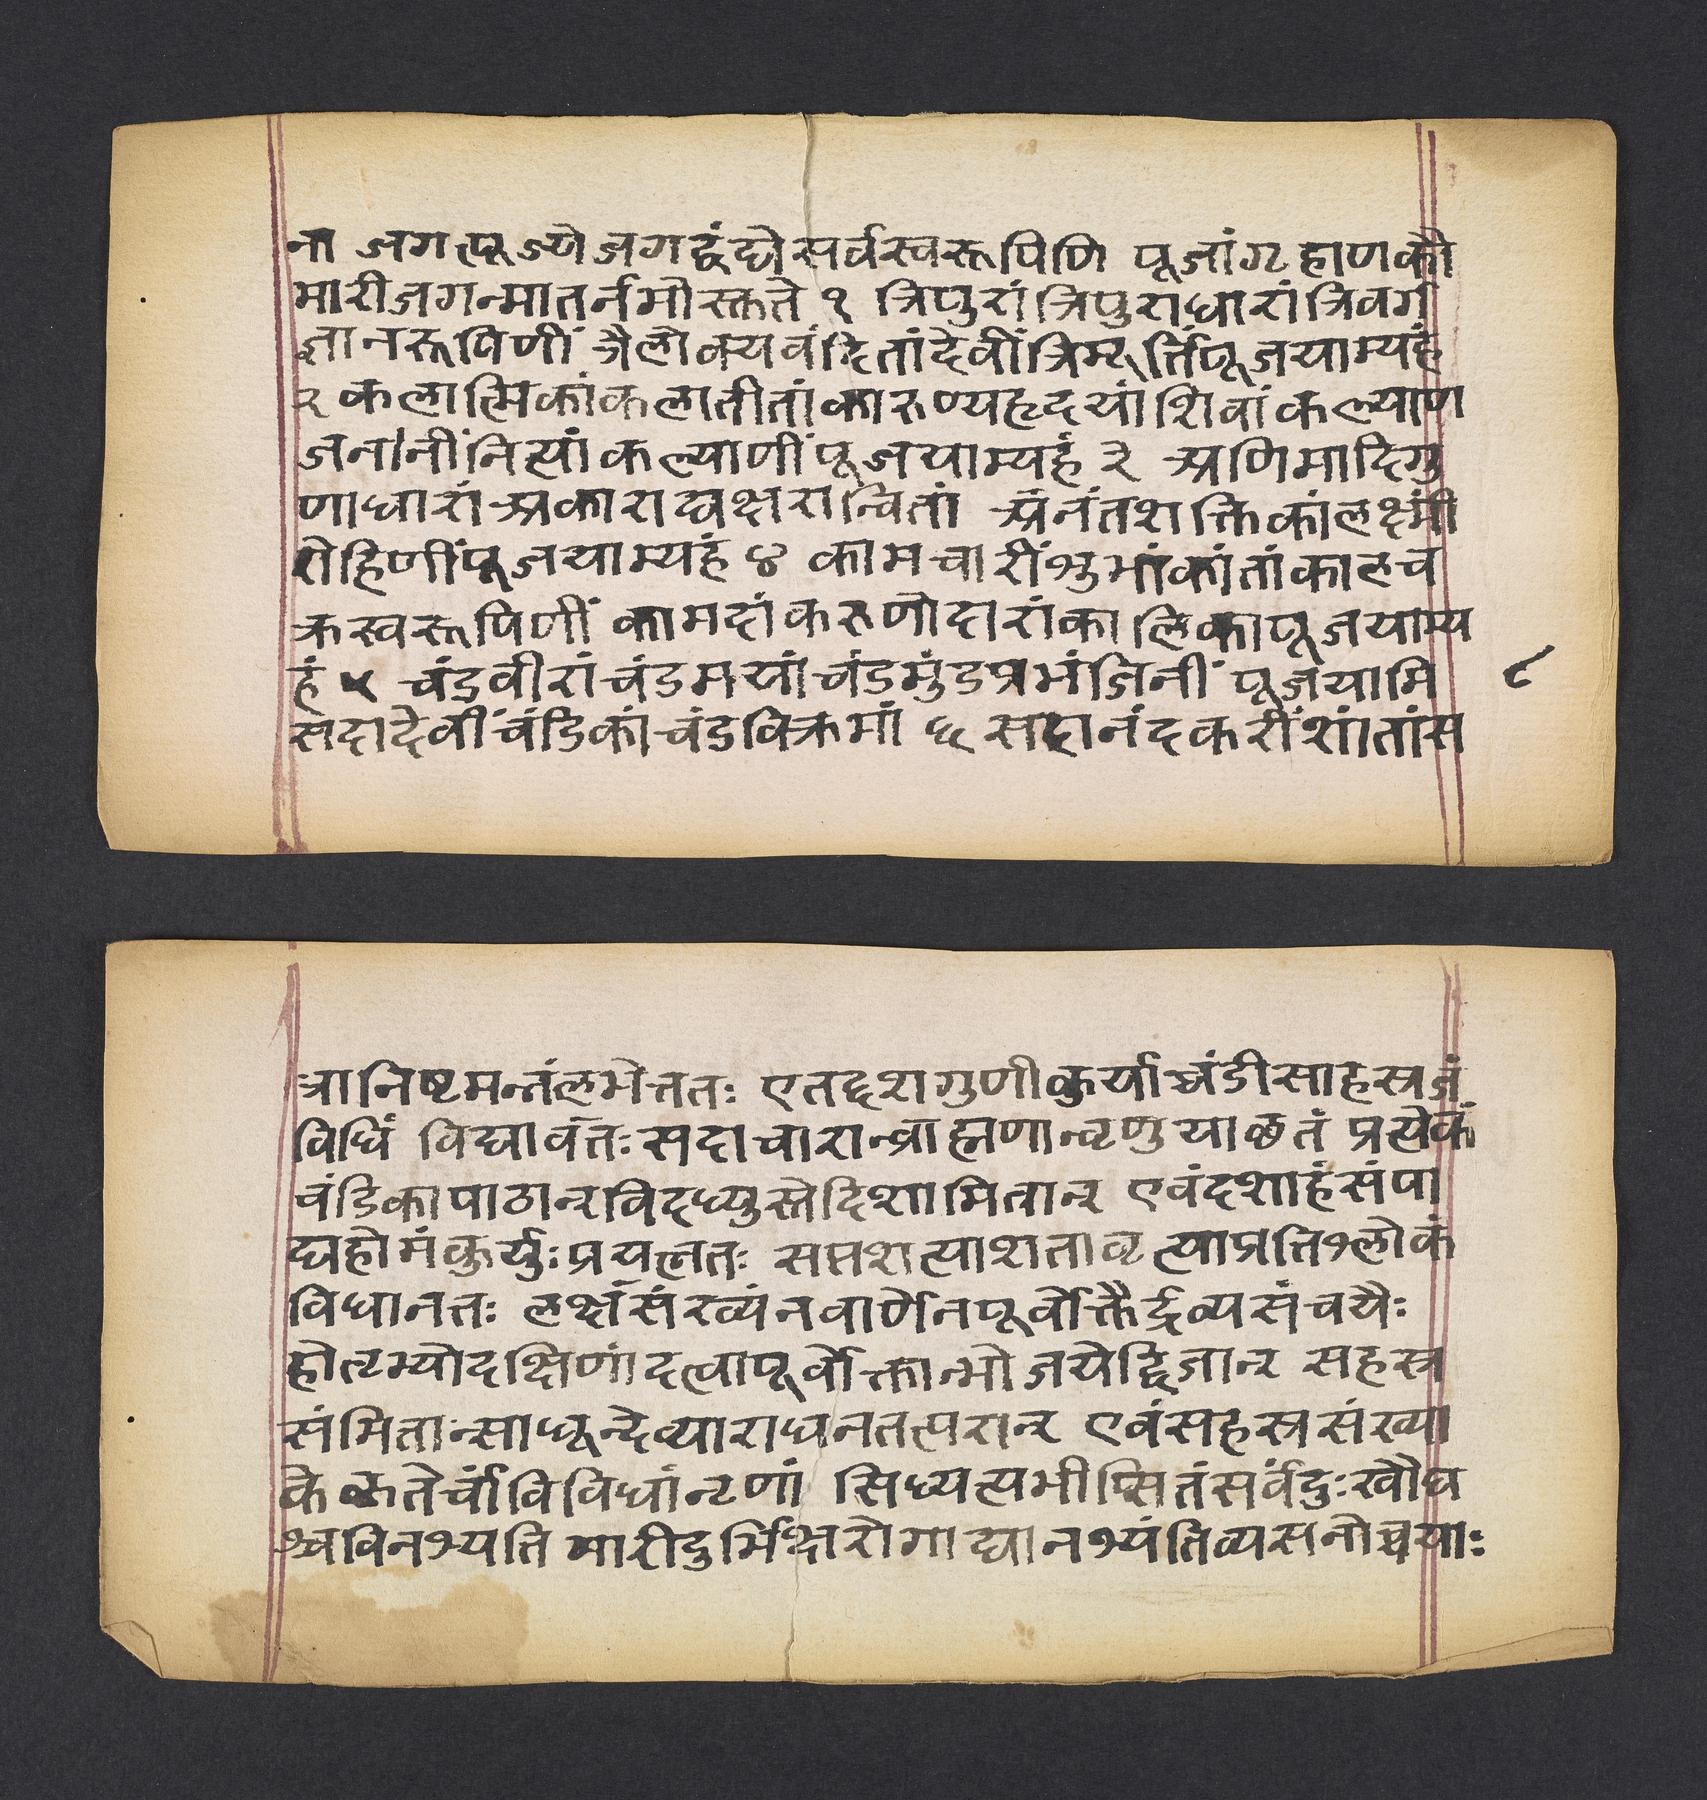 ना जगत्पूज्ये जगद्वंद्ये सर्वस्वरूपिणि पूजांगृहाणकौ
मारीजगन्मातर्नमोस्तुते १ त्रिपुरांत्रिपुराधारांत्रिवर्ग
ज्ञानरूपिणीं त्रैलोक्यवंदितांदेवींत्रिमूर्त्तिंपूजयाम्यहं
२ कलात्मिकांकलातीतांकारुण्यहृदयांशिवांकल्याण
जननींनित्यांकल्याणींपूजयाम्यहं ३ अणिमादिगु
णाधारांअकाराद्यक्षरान्वितां अनंतशक्तिकांलक्ष्मीं
रोहिणींपूजयाम्यहं ४ कामचारींशुभांकांतांकालच
क्रस्वरूपिणीं कामदांकरुणोदारांकालिकापूजयाम्य
हं ५ चंडवीरांचंडमयांचंडमुंडप्रभंजिनीं पूजयामि
सदादेवींचंडिकांचंडविक्रमां ६ सदानंदकरींशांतांस
८
त्रानिष्टमन्तंलभेत्ततः एतद्दशगुणीकुर्याच्चंडीसाहस्रजं
विधिं विद्यावंतःसदाचारान्ब्राह्मणान्वृणुयाच्छतं प्रत्येकं
चंडिकापाठान्विदध्युस्तेदिशामितान् एवंदशाहंसंपा
द्यहोमंकुर्युःप्रयत्नतः सप्तशत्याशतावृत्त्याप्रतिश्लोकं
विधानतः लक्षसंख्यंनवार्णेनपूर्वोक्तैर्द्रव्यसंचयैः
होतृभ्योदक्षिणांदत्वापूर्वोक्तान्भोजयेद्विजान् सहस्र
संमितान्साधून्देव्याराधनतत्परान् एवंसहस्रसंख्या
केकृतेर्चाविविधांनृणां सिध्यत्यभीप्सितंसर्वदुःखौघ
श्चविनश्यति मारीदुर्भिक्षरोगाद्यानश्यंतिव्यसनोच्चयाः